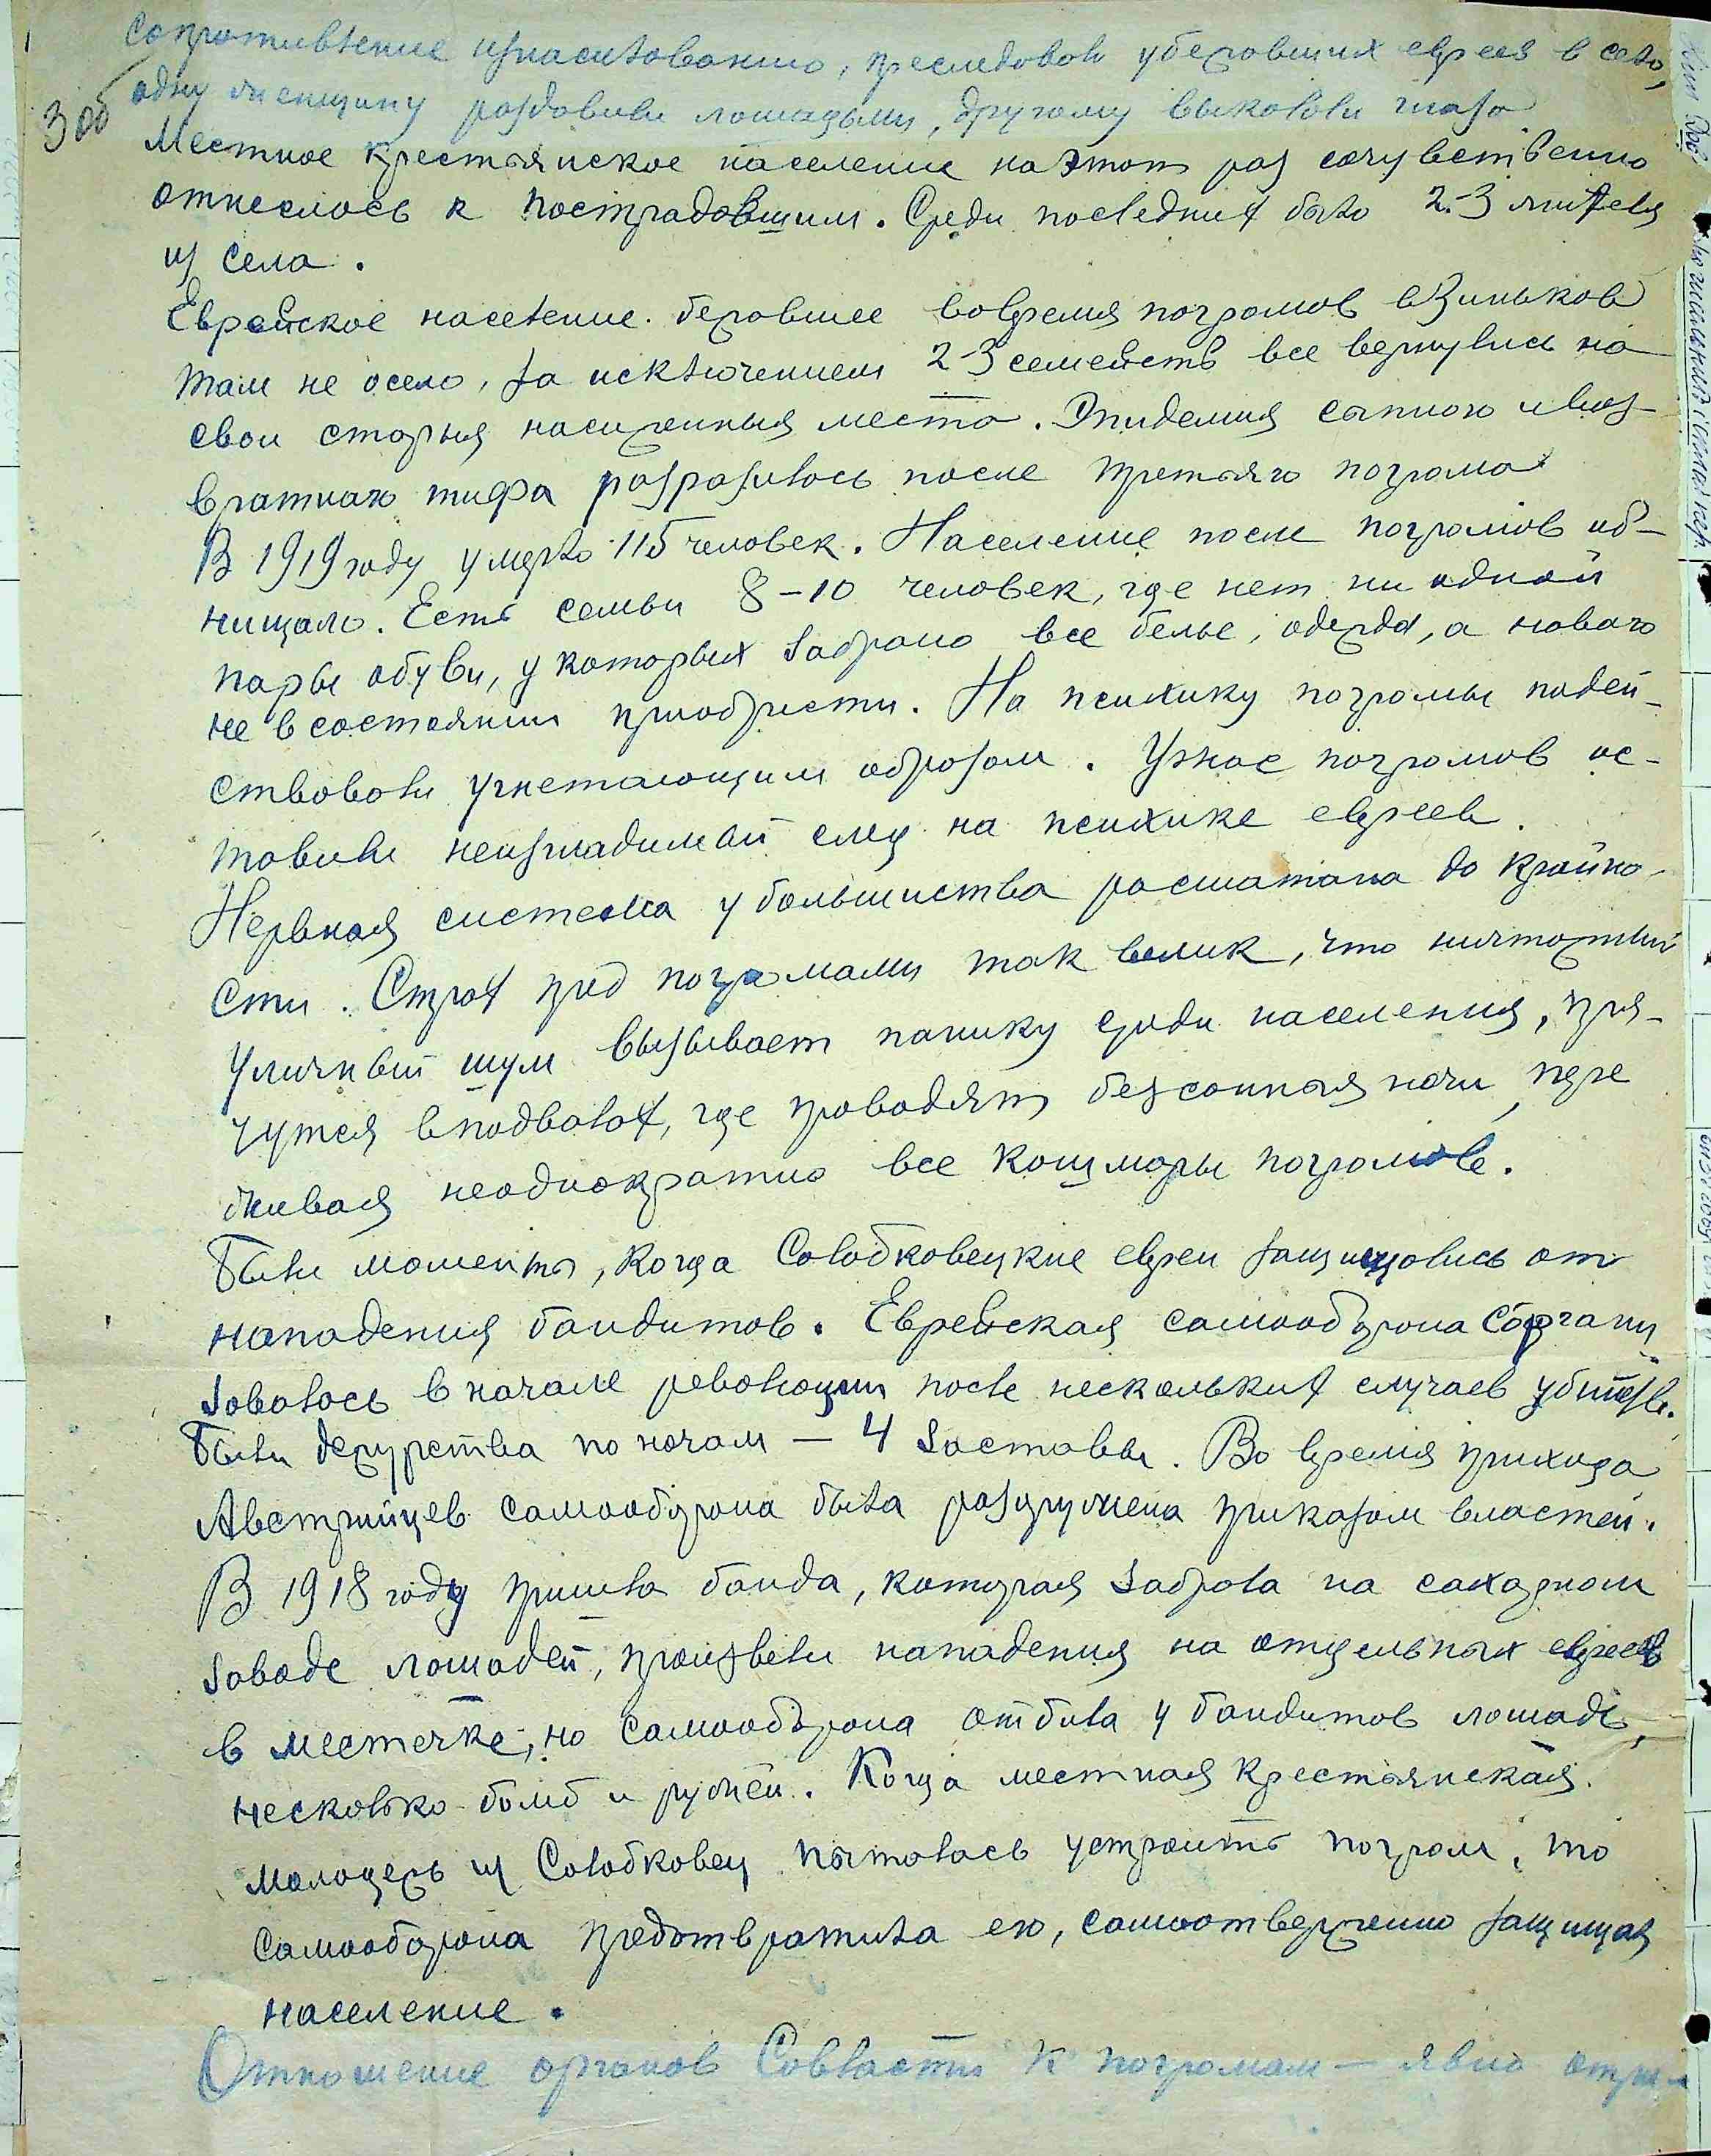 3об
сопротивление изнасилованию, преследовали убежавших евреев в село,
одну женщину раздавили лошадьми, другому выкололи глаза
Местное крестьянское население на этот раз сочувственно
отнеслось к пострадавшим. Среди последних было 2-3 жителя
из села.
Еврейское население бежавшее вовремя погромов в Зиньков
там не осело, за исключением 2-3 семейств все вернулись на
свои старыя насиженныя места. Эпидемия сыпного и воз-
вратнаго тифа разразилось после третьяго погрома
В 1919 году умерло 115 человек. Население после погромов об-
нищало. Есть семьи 8-10 человек, где нет ни одной
пары обуви, у которых забрано все белье, одежда, а новаго
не в состоянии приобрести. На психику погромы подей-
ствовали угнетающим образом. Ужас погромов ос-
тавили неизгладимый след на психике евреев.
Нервная система у большинства расшатана до крайно-
сти. Страх пред погромами так велик, что ничтожный
уличный шум вызывает панику среди населения, пря-
чутся в подвалах, где проводят безсонныя ночи, пере
живая неоднократно все кошмары погромов.
Были моменты, когда Солобковецкие евреи защищались от
нападения бандитов. Еврейская самооборона соргани-
зовалось в начале революции после нескольких случаев убийств.
Были дежурства по ночам — 4 заставы. Во время прихода
Австрийцев самооборона была разоружена приказом властей.
В 1918 году пришла банда, которая забрала на сахарном
заводе лошадей, произвели нападения на отдельных евреев
в местечке, но самооборона отбила у бандитов лошадь,
несколько бомб и ружей. Когда местная крестьянская
молодежь из Солобковец пыталась устроить погром, то
самооборона предотвратила его, самоотверженно защищая
население.
Отношение органов Совласти к погромам — явно отри-